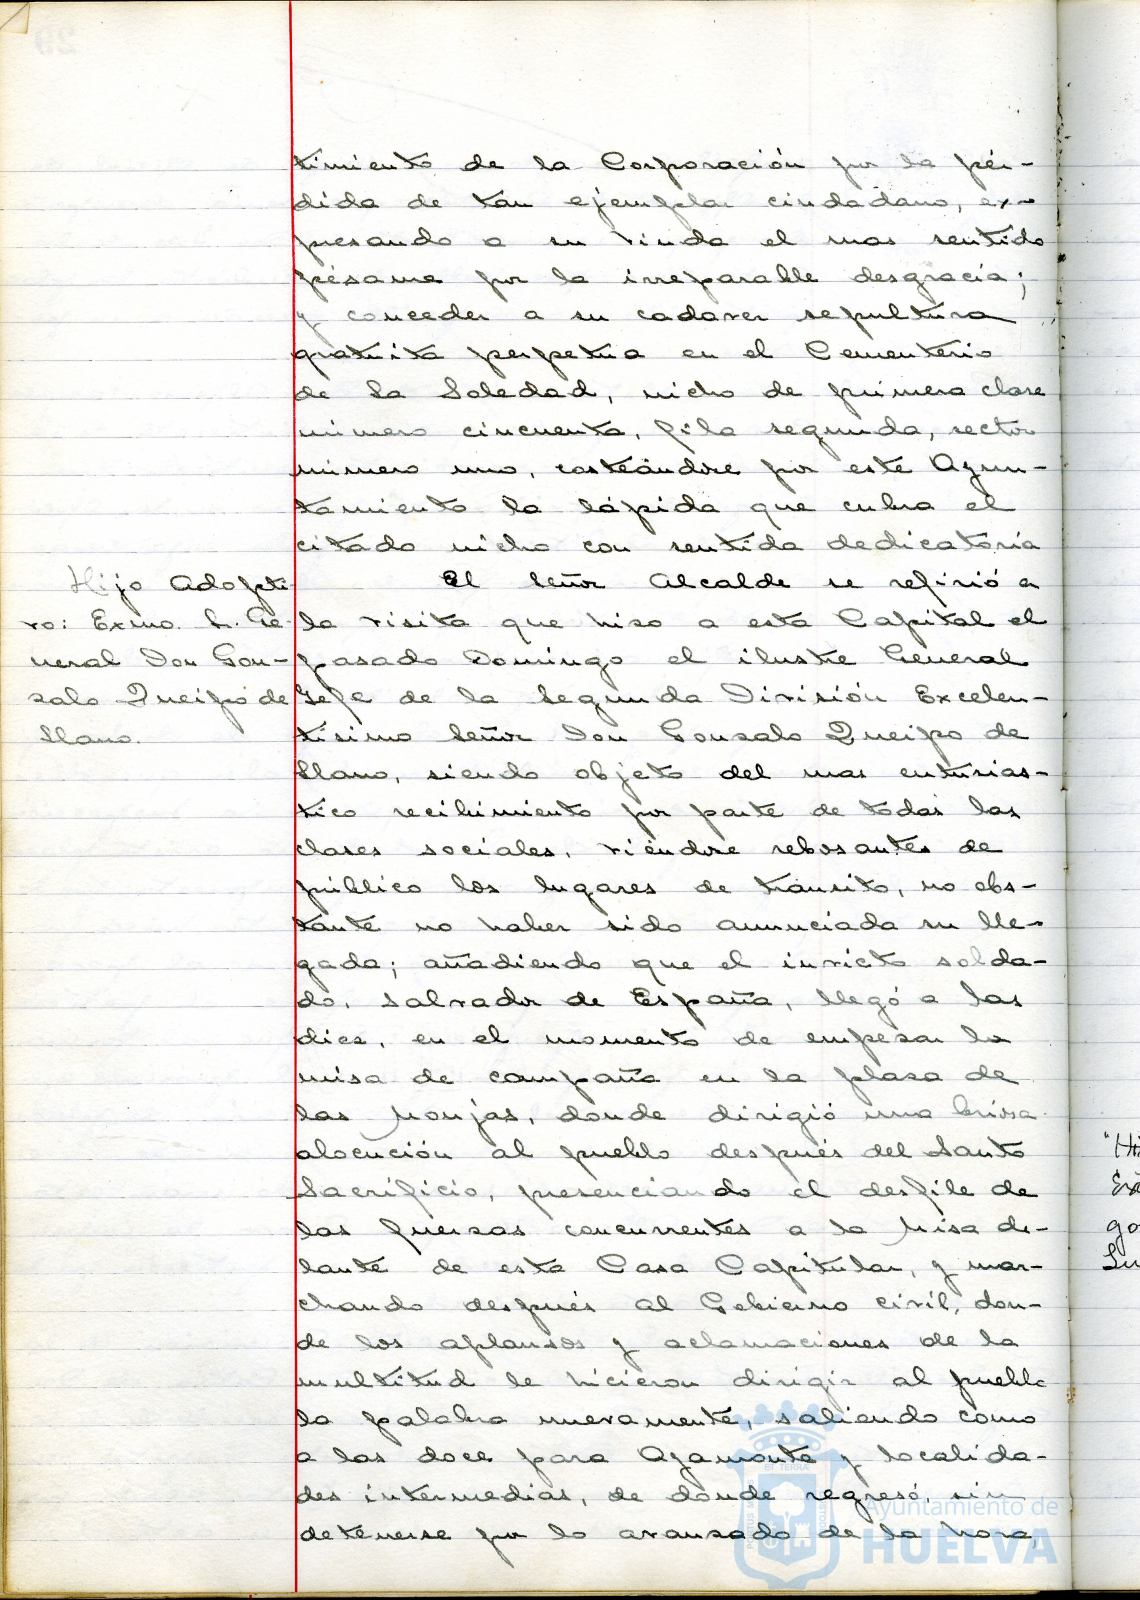 timiento de la Corporación por la pér-
dida de tan ejemplar ciudadano, ex-
presando a su viuda el mas sentido
pésame por la irreparable desgracia;
y conceder a su cadaver sepultura
gratuita perpetua en el Cementerio
de la Soledad, nicho de primera clase
número cincuenta, fila segunda, sector
número uno, costeándose por este Ayun-
tamiento la lápida que cubra el
citado nicho con sentida dedicatoria
Hijo Adopti-
vo: Exmo. S. Ge-
neral Don Gon-
salo Queipo de
Llano.
El Señor Alcalde se refirió a
la visita que hiso a esta Capital el
pasado Domingo el ilustre General
Gefe de la Segunda División Excelen-
tísimo Señor Don Gonsalo Queipo de
Llano, siendo objeto del mas entusias-
tico recibimiento por parte de todas las
clases sociales, viéndose rebosantes de
público los lugares de tránsito, no obs-
tante no haber sido anunciada su lle-
gada; añadiendo que el invicto solda-
do, salvador de España, llegó a las
diez, en el momento de empesar la
misa de campaña en la plasa de
las Monjas, donde dirigió una breve
alocución al pueblo después del Santo
Sacrificio, presenciando el desfile de
las fuersas concurrentes a la Misa de-
lante de esta Casa Capitular, y mar-
chando después al Gobierno civil, don-
de los aplausos y aclamaciones de la
multitud le hicieron dirigir al pueblo
la palabra nuevamente, saliendo como
a las doce para Ayamonte y localida-
des intermedias, de donde regresó, sin
detenerse por lo avansado de la hora,
Ayuntamiento de
HUELVA